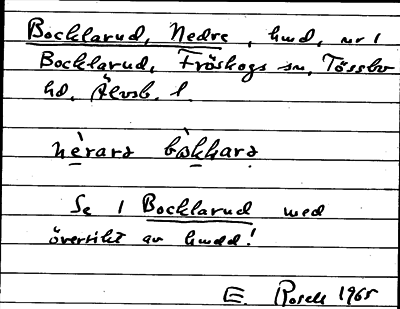 Bocklarud, Nedre, hmd, nr 1
Bocklarud, Fröskogs sn, Tössbo
hd, Älvsb. l.
Se 1 Bocklarud med
översikt av hmdd!
E. Rosell 1965